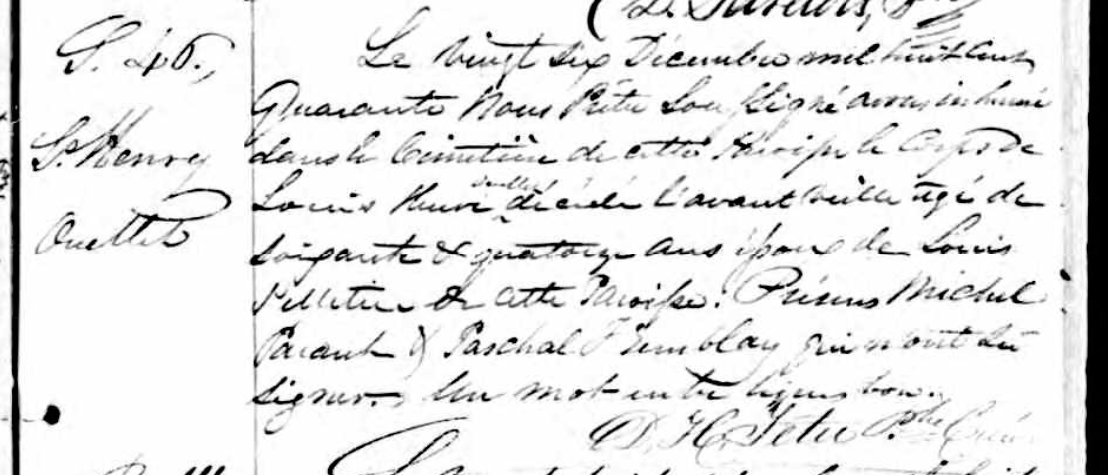 S. 46.
Le vingt six Décembre mil huit cent
Quarante Nous Prêtre Soussigné avons inhumé
St Henry
dans le Cimetière de cette Paroisse le Corps de
Louis Henri Ouellet décédé l'avant veille agé de
Ouellet
soixante & quatorze ans époux de Louise
Pelletier de cette Paroisse. Présens Michel
Parant & Paschal Tremblay qui n'ont su
signer. Un mot entre lignes bon.
D. H. Tetu Ptre Curé